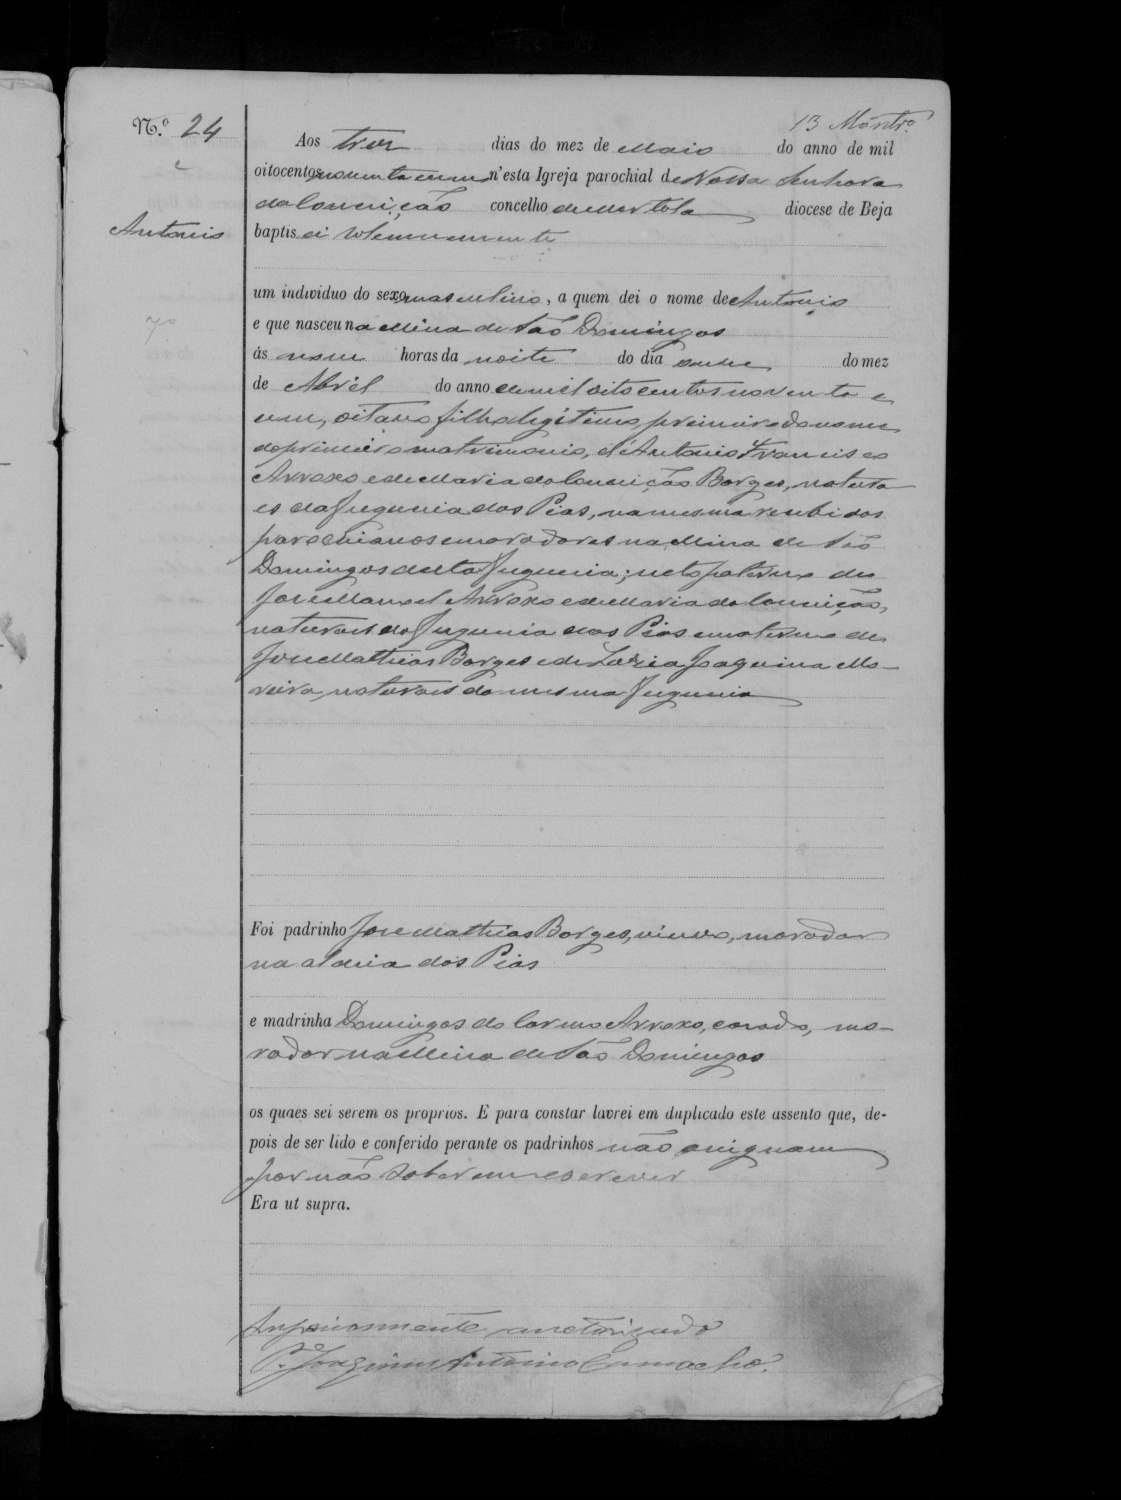 N.º 24
13 Montr.º
Aos tres dias do mez de Maio do anno de mil
oitocentos noventa e um n'esta Igreja parochial de Nossa Senhora
da Conceição concelho de Mertola diocese de Beja
Antonio
baptisei solemnemente
um individuo do sexo masculino, a quem dei o nome de Antonio
e que nasceu na Mina de São Domingos
ás nove horas da noite do dia onze do mez
de Abril do anno de mil oito centos noventa e
um, oitavo filho legitimo, primeiro do nome
do primeiro matrimonio, d'Antonio Francisco
Arroxo e de Maria da Conceição Borges, natura
es da freguesia das Pias, na mesma recebidos
parochianos e moradores na Mina de São
Domingos desta freguesia; neto paterno de
José Manoel Arroxo e de Maria da Conceição,
naturaes da freguesia das Pias e materno de
José Mathias Borges e de Luzia Joaquina Mo-
reira, naturaes da mesma freguesia
Foi padrinho José Mathias Borges, viuvo, morador
na aldeia das Pias
e madrinha Domingos do Carmo Arroxo, casado, mo-
rador na Mina de São Domingos
os quaes sei serem os proprios. E para constar lavrei em duplicado este assento que, de-
pois de ser lido e conferido perante os padrinhos não assignam
por não saberem escrever
Era ut supra.
Superiormente auctorizado
P.e Joaquim Antonio Camacho.